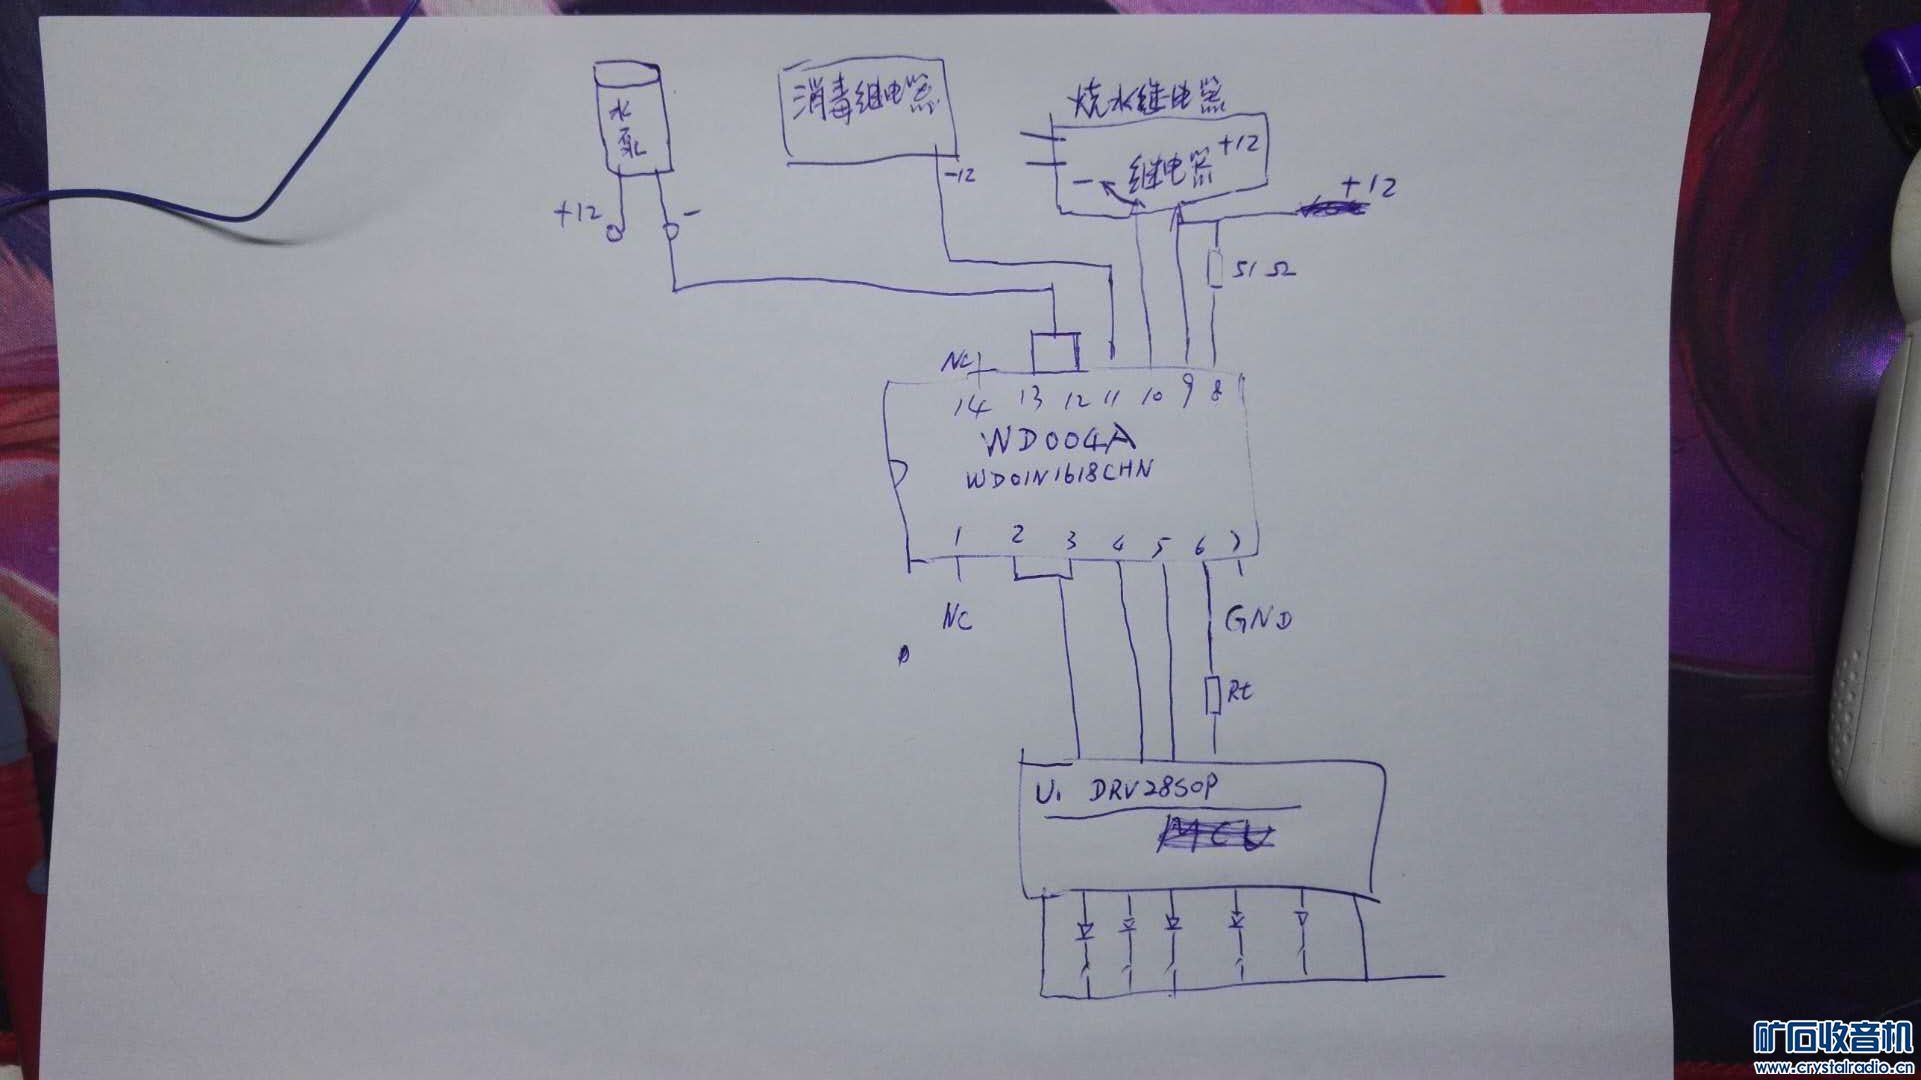 水
泵
+12
-
消毒继电器
-12
烧水继电器
继电器 +12
-
+12
51Ω
NC
14 13 12 11 10 9 8
WD004A
WD01N1618CHN
1 2 3 4 5 6 7
NC
GND
Rt
U1 DRV28SOP
矿石收音机
www.crystalradio.cn